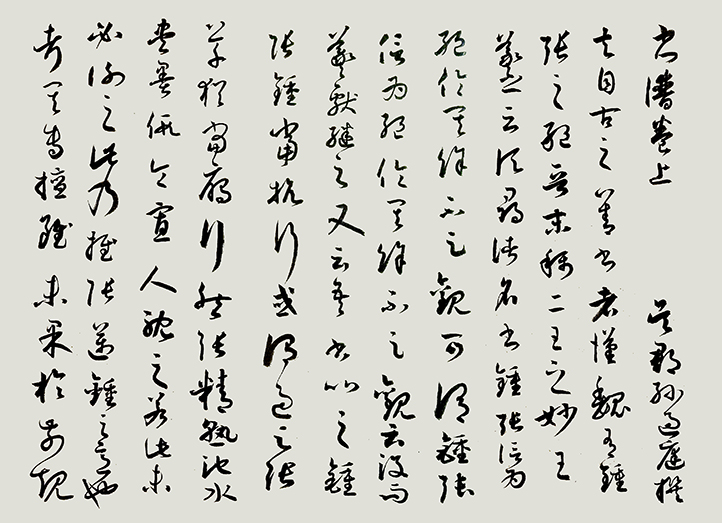 書譜卷上 吳郡孫過庭撰
夫自古之善書者漢魏有鍾
張之絕晉末稱二王之妙王
羲之云頃尋諸名書鍾張信為
絕倫其餘不足觀可謂鍾張
信為絕倫其餘不足觀云沒而
羲獻繼之又云吾書比之鍾
張鍾當抗行或謂過之張
草猶當雁行然張精熟池水
盡墨假令寡人耽之若此未
必謝之此乃推張邁鍾之意也
考其專擅雖未果於前規